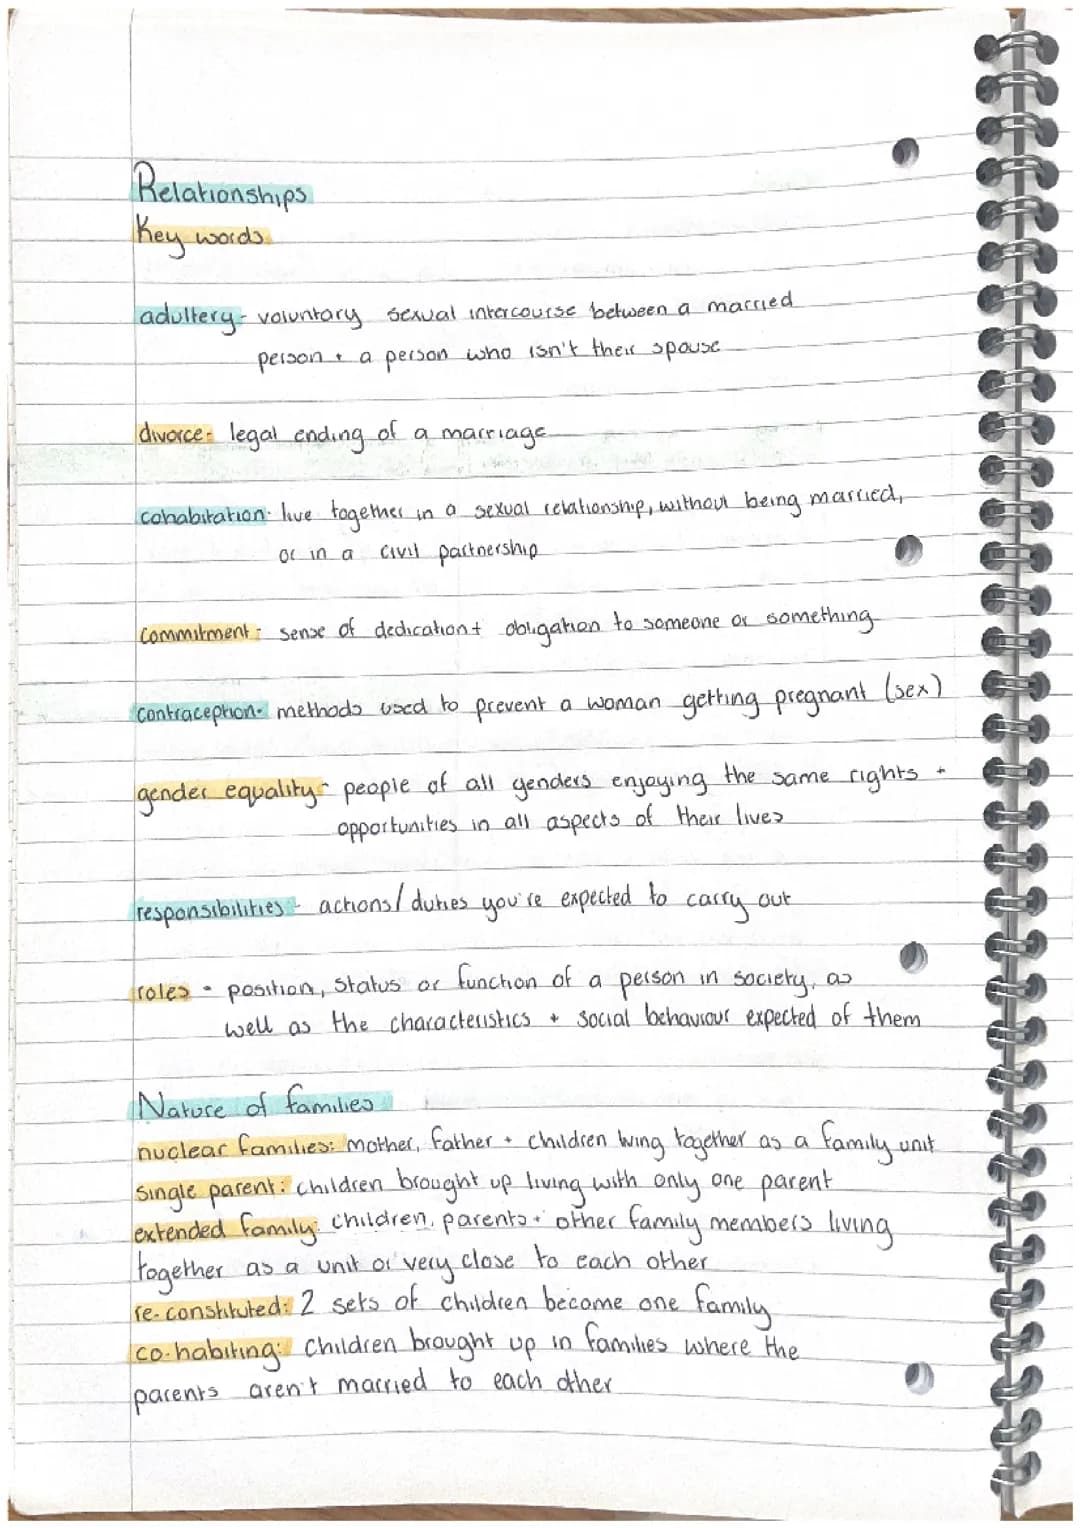 Relationships
Key words
adultery - voluntary sexual intercourse between a married
person + a person who isn't their spouse
divorce - legal ending of a marriage
cohabitation - live together in a sexual relationship, without being married,
or in a civil partnership
commitment - sense of dedication + obligation to someone or something
contraception - methods used to prevent a woman getting pregnant (sex)
gender equality - people of all genders enjoying the same rights +
opportunities in all aspects of their lives
responsibilities - actions/duties you're expected to carry out
roles - position, status or function of a person in society, as
well as the characteristics + social behaviour expected of them
Nature of families
nuclear families: mother, father + children living together as a family unit
single parent: children brought up living with only one parent
extended family: children, parents + other family members living
together as a unit or very close to each other
re-constituted: 2 sets of children become one family
co-habiting: children brought up in families where the
parents aren't married to each other